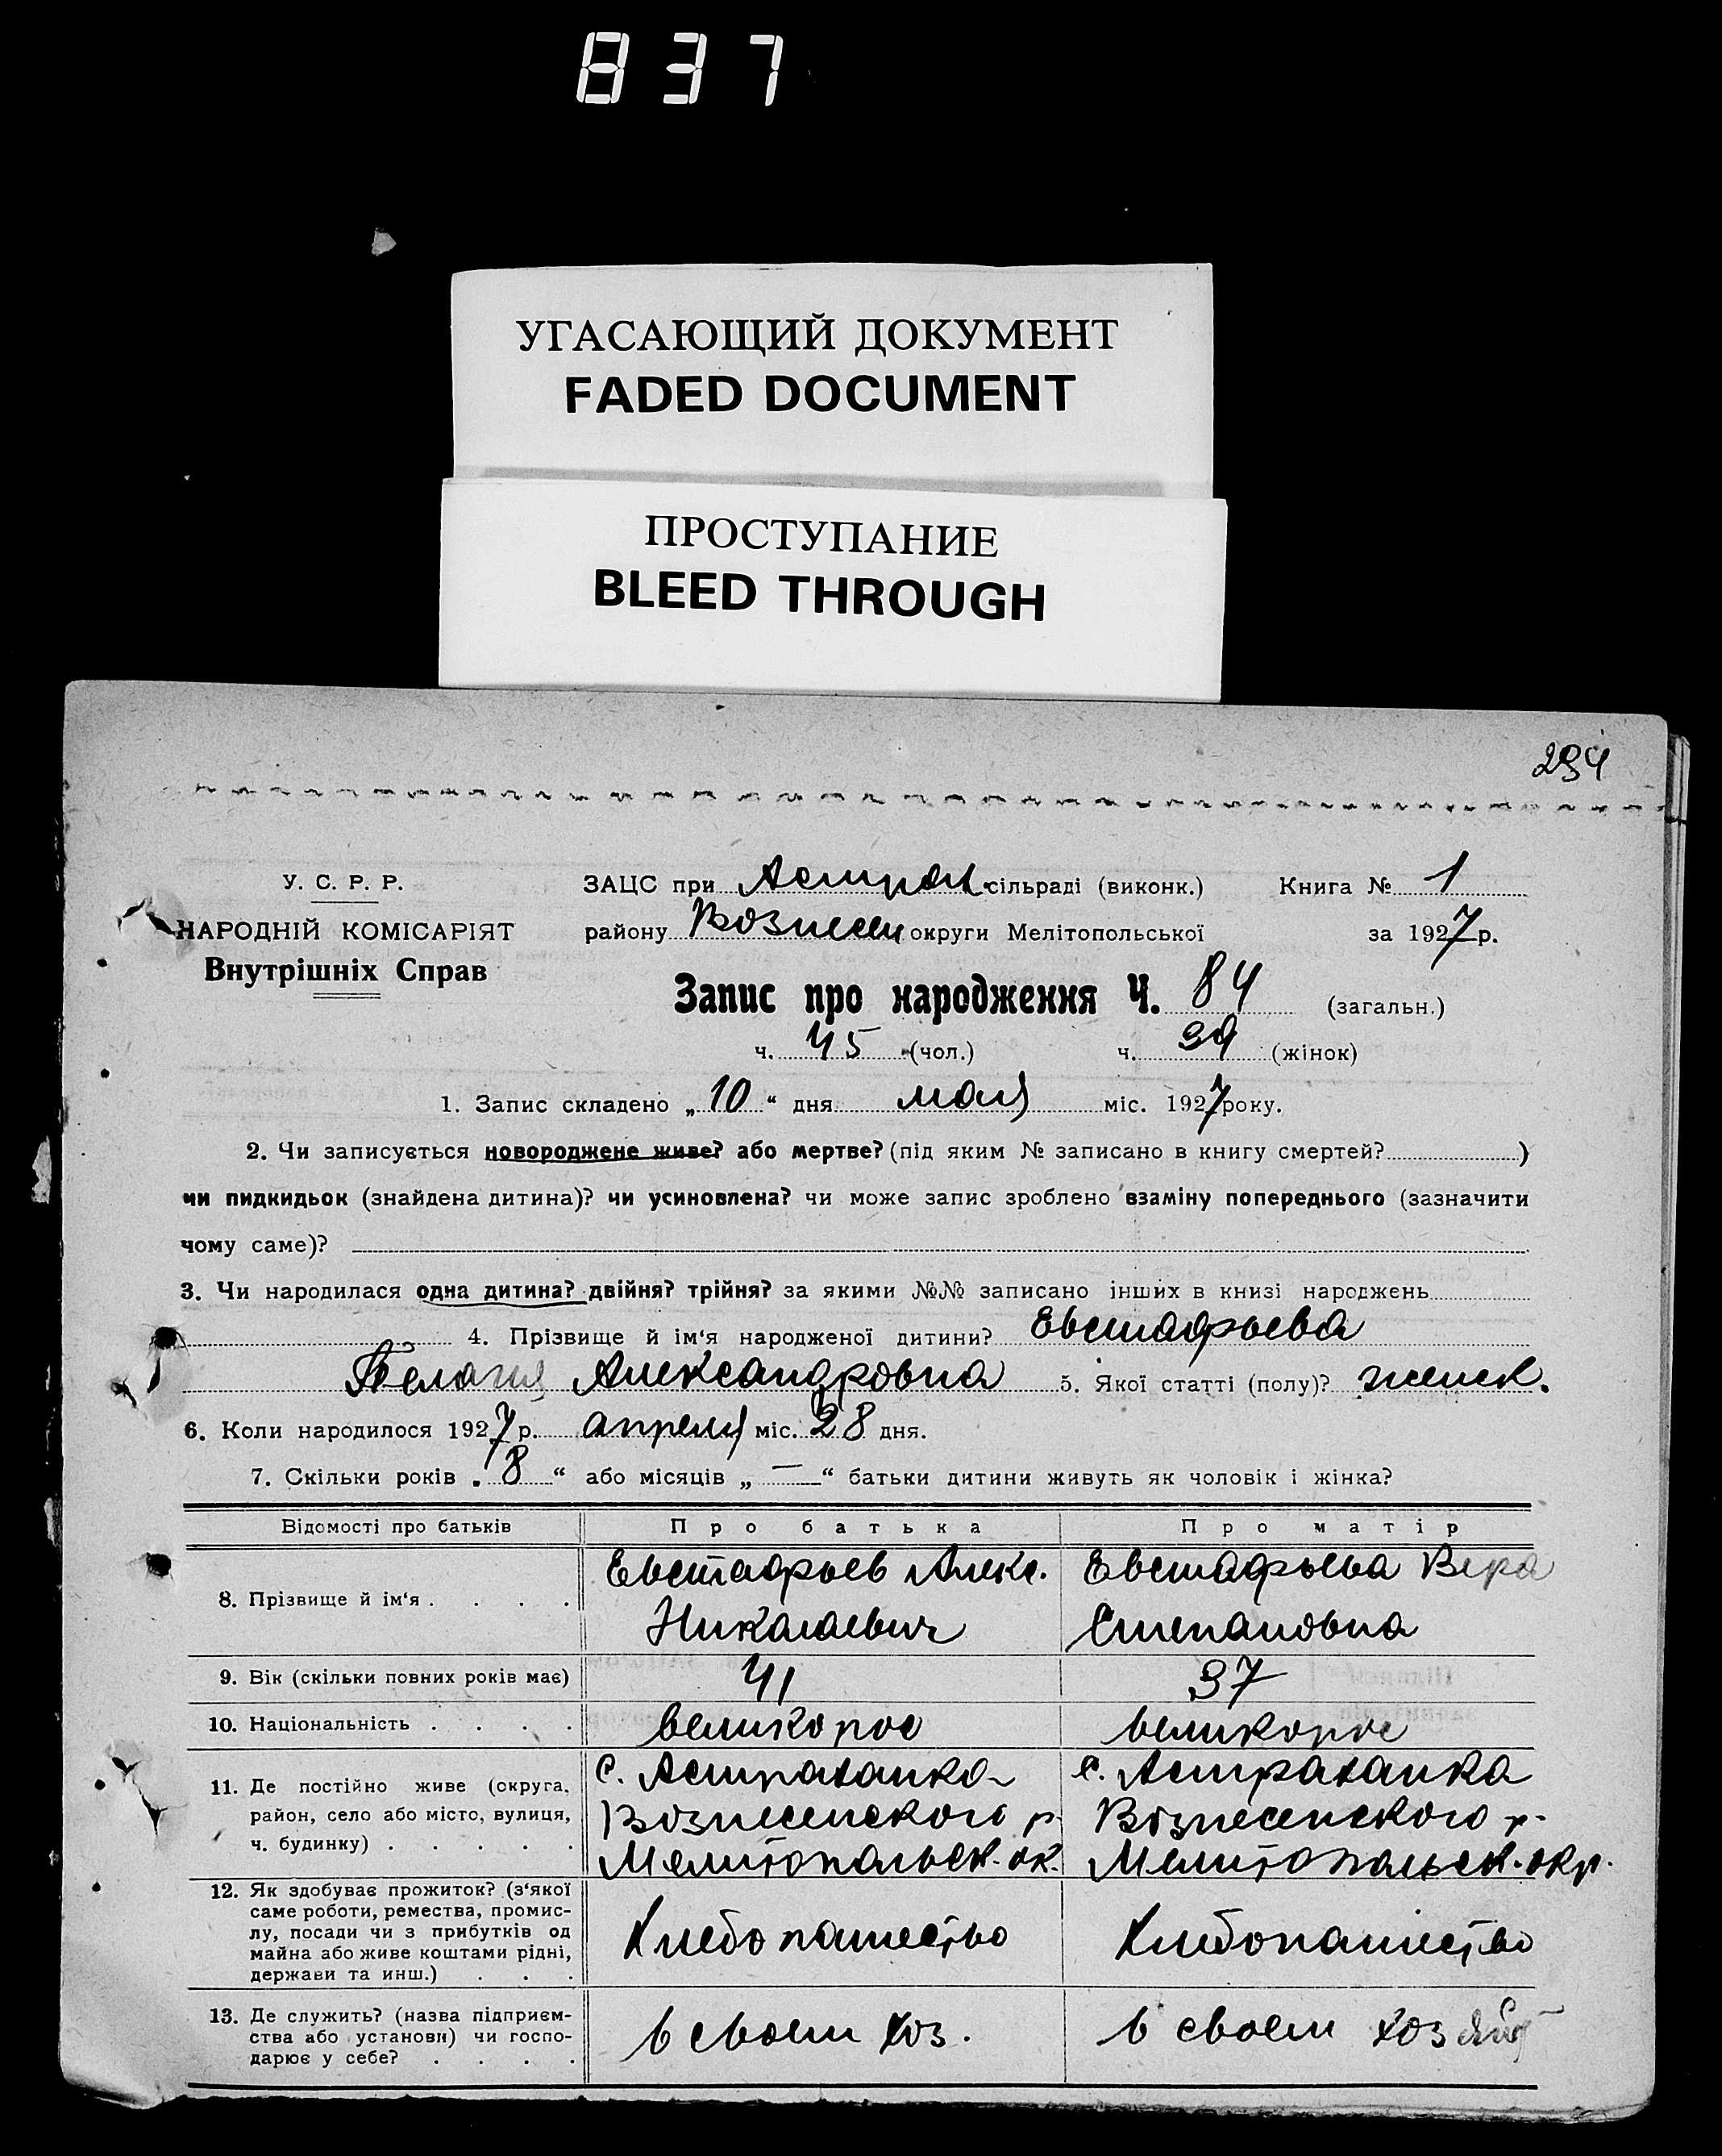 837
УГАСАЮЩИЙ ДОКУМЕНТ
FADED DOCUMENT
ПРОСТУПАНИЕ
BLEED THROUGH
294
У. С. Р. Р.
НАРОДНІЙ КОМІСАРІЯТ
Внутрішніх Справ
ЗАЦС при Астрах. сільраді (виконк.) Книга № 1
району Вознесен округи Мелітопольської за 1927 р.
Запис про народження Ч. 84 (загальн.)
ч. 45 (чол.) ч. 39 (жінок)
1. Запис складено „10“ дня мая міс. 1927 року.
2. Чи записується новороджене живе? або мертве? (під яким № записано в книгу смертей? )
чи пидкидьок (знайдена дитина)? чи усиновлена? чи може запис зроблено взаміну попереднього (зазначити
чому саме)?
3. Чи народилася одна дитина? двійня? трійня? за якими №№ записано інших в книзі народжень
4. Прізвище й ім‘я народженої дитини? Евстафьева
Пелагия Александровна 5. Якої статті (полу)? женск.
6. Коли народилося 1927 р. апреля міс. 28 дня.
7. Скільки років „8“ або місяців „—“ батьки дитини живуть як чоловік і жінка?
Відомості про батьків Про батька Про матір
8. Прізвище й ім‘я . . . .
Евстафьев Алекс.
Николаевич
Евстафьева Вера
Степановна
9. Вік (скільки повних років має) 41 37
10. Національність . . . . великорос великорос
11. Де постійно живе (округа,
район, село або місто, вулиця,
ч. будинку) . . . . .
с. Астраханка
Вознесенского р.
Мелитопольск. ок.
с. Астраханка
Вознесенского р.
Мелитопольск. окр.
12. Як здобуває прожиток? (з‘якої
саме роботи, ремества, промис-
лу, посади чи з прибутків од
майна або живе коштами рідні,
держави та инш.) . . .
Хлебопашество
Хлебопашество
13. Де служить? (назва підприєм-
ства або установи) чи госпо-
дарює у себе? . . . .
в своем хоз.
в своем хозяйст